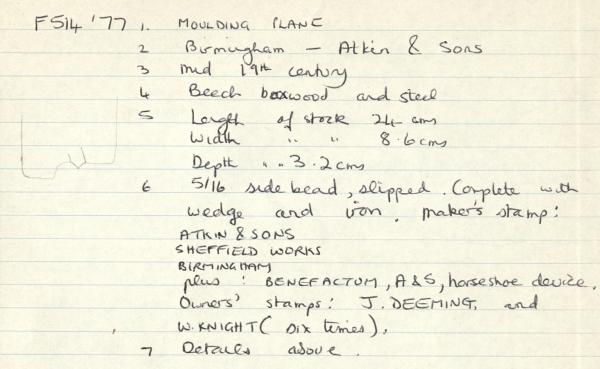 F514 '77 1. MOULDING PLANE
2 Birmingham – Atkin & Sons
3 mid 19th century
4 Beech boxwood and steel
5 Length of stock 24 cms
Width " " 8.6 cms
Depth " " 3.2 cms
6 5/16 side bead, slipped. Complete with
wedge and iron. maker's stamp:
ATKIN & SONS
SHEFFIELD WORKS
BIRMINGHAM
plus : BENEFACTUM, A&S, horseshoe device.
Owners' stamps: J. DEEMING. and
W. KNIGHT (six times).
7 Details above.